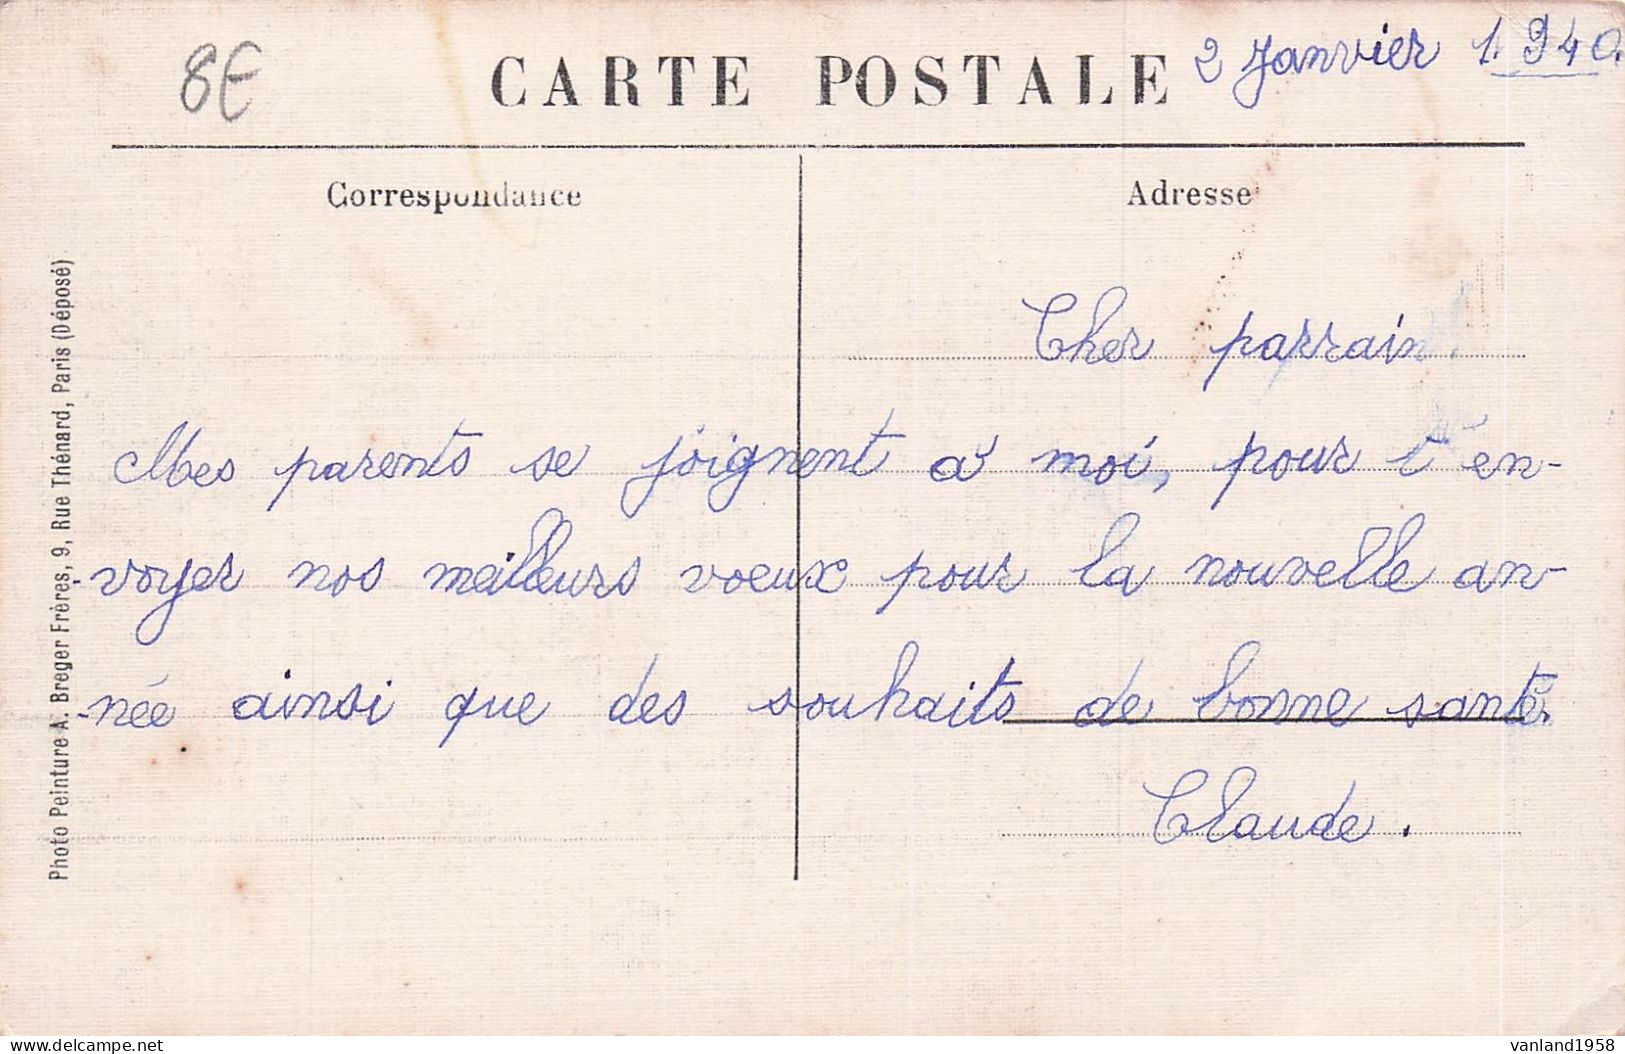 8E
CARTE POSTALE
2 Janvier 1.940.
Correspondance
Adresse
Cher parrain.
Mes parents se joignent à moi, pour t'en-
-voyer nos meilleurs voeux pour la nouvelle an-
-née ainsi que des souhaits de bonne santé.
Claude.
Photo Peinture A. Breger Frères, 9, Rue Thénard, Paris (Déposé)
vanland1958